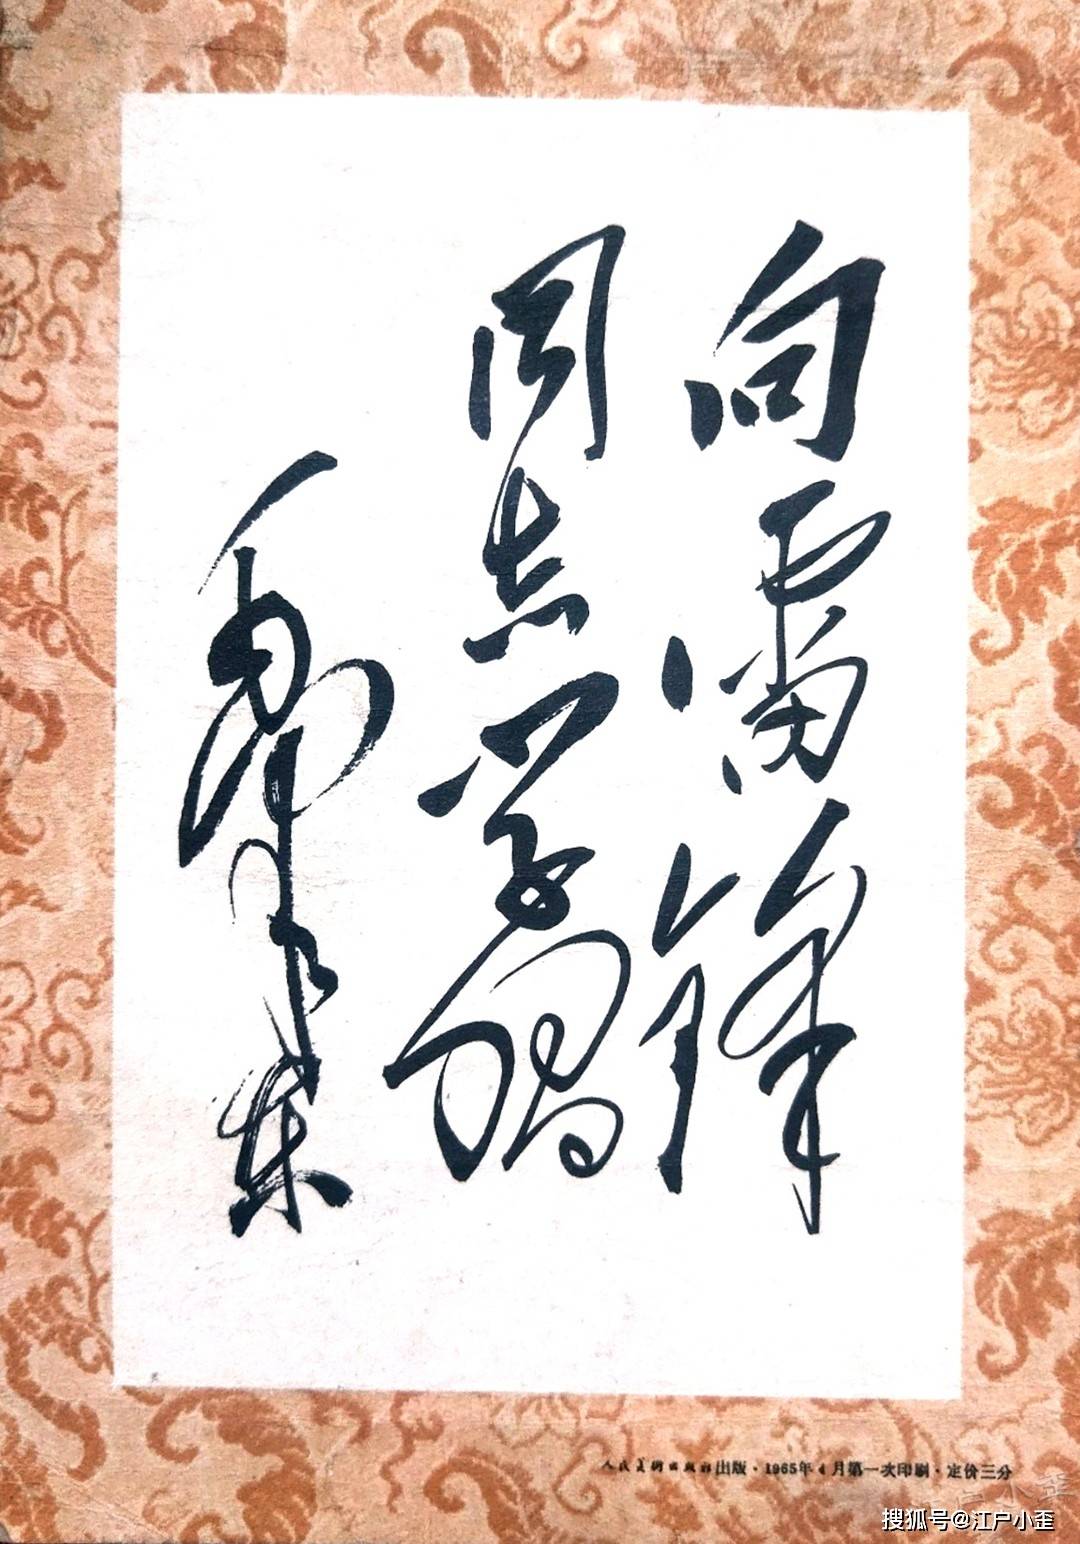 向雷锋
同志学习
毛泽东
人民美術出版社出版·1965年4月第一次印刷·定价三分
搜狐号@江户小歪